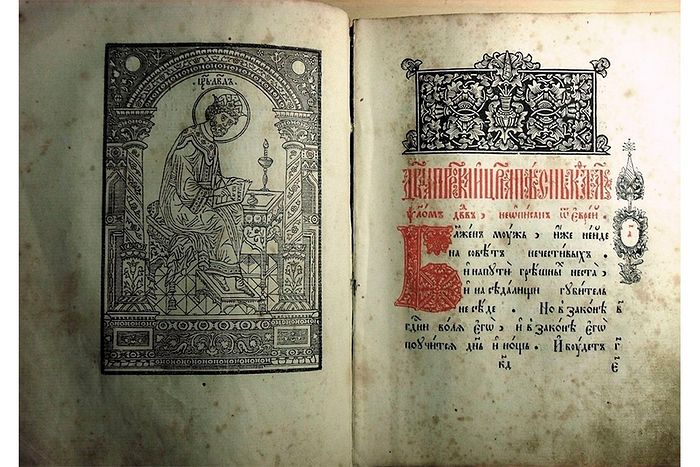 Цр҃ь Дв҃дъ
ѱало́мъ дв҃дъ, неѡпи́санъ ѿ еврє́й
Бл҃же́нъ моу́жъ, и҆́же неи́де
на совѣ́тъ нечести́выхъ.
и҆ напꙋтѝ грѣ́шны неста̀,
и҆ на сѣда́лищи гꙋби́тель
не сѣ́де. Но в зако́нѣ в҃
гд҇ни во́лѧ є҆гѡ̀, и҆ в зако́нѣ є҆гѡ̀
поучи́тсѧ дн҃ь и҆ но́щь. И҆ боу́детъ г҃